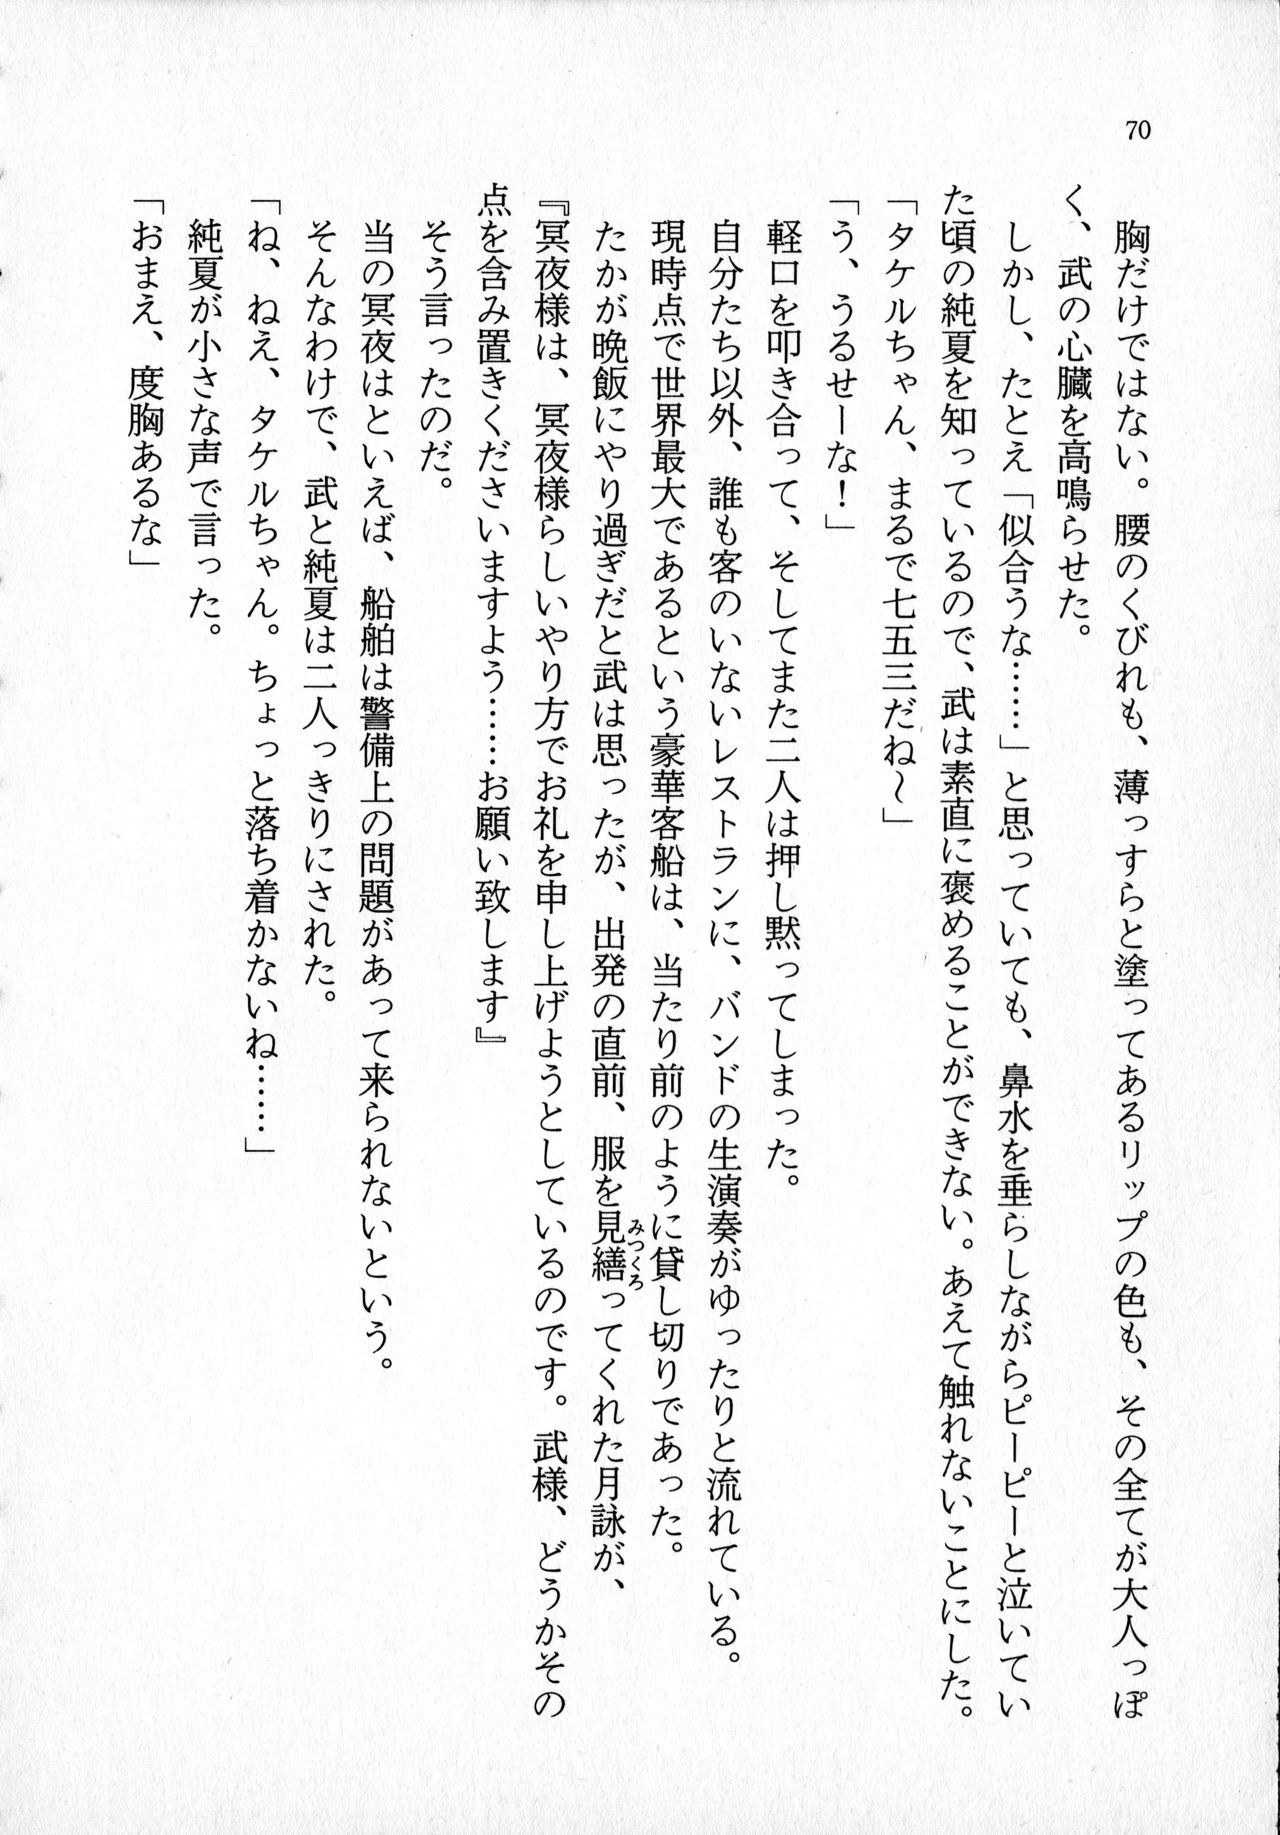 70
胸だけではない。腰のくびれも、薄っすらと塗ってあるリップの色も、その全てが大人っぽ
く、武の心臓を高鳴らせた。
しかし、たとえ「似合うな……」と思っていても、鼻水を垂らしながらピーピーと泣いてい
た頃の純夏を知っているので、武は素直に褒めることができない。あえて触れないことにした。
「タケルちゃん、まるで七五三だね〜」
「う、うるせーな！」
軽口を叩き合って、そしてまた二人は押し黙ってしまった。
自分たち以外、誰も客のいないレストランに、バンドの生演奏がゆったりと流れている。
現時点で世界最大であるという豪華客船は、当たり前のように貸し切りであった。
たかが晩飯にやり過ぎだと武は思ったが、出発の直前、服を見繕ってくれた月詠が、
みつくろ
『冥夜様は、冥夜様らしいやり方でお礼を申し上げようとしているのです。武様、どうかその
点を含み置きくださいますよう……お願い致します』
そう言ったのだ。
当の冥夜はといえば、船舶は警備上の問題があって来られないという。
そんなわけで、武と純夏は二人っきりにされた。
「ね、ねえ、タケルちゃん。ちょっと落ち着かないね……」
純夏が小さな声で言った。
「おまえ、度胸あるな」